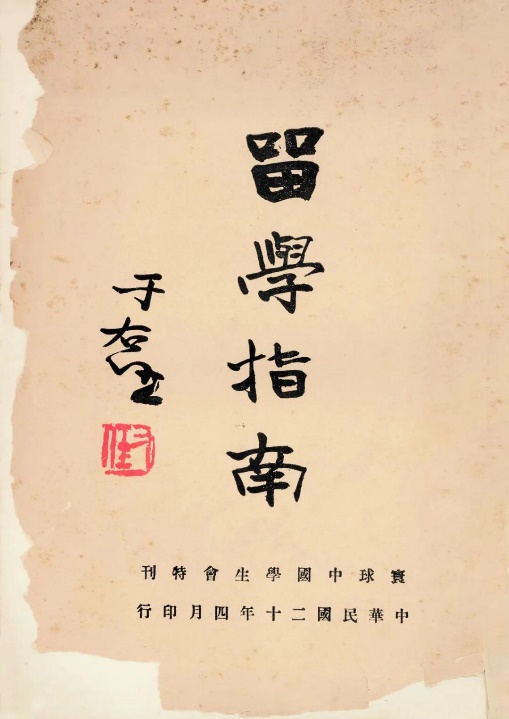 留學指南
于右任
寰球中國學生會特刊
中華民國二十年四月印行